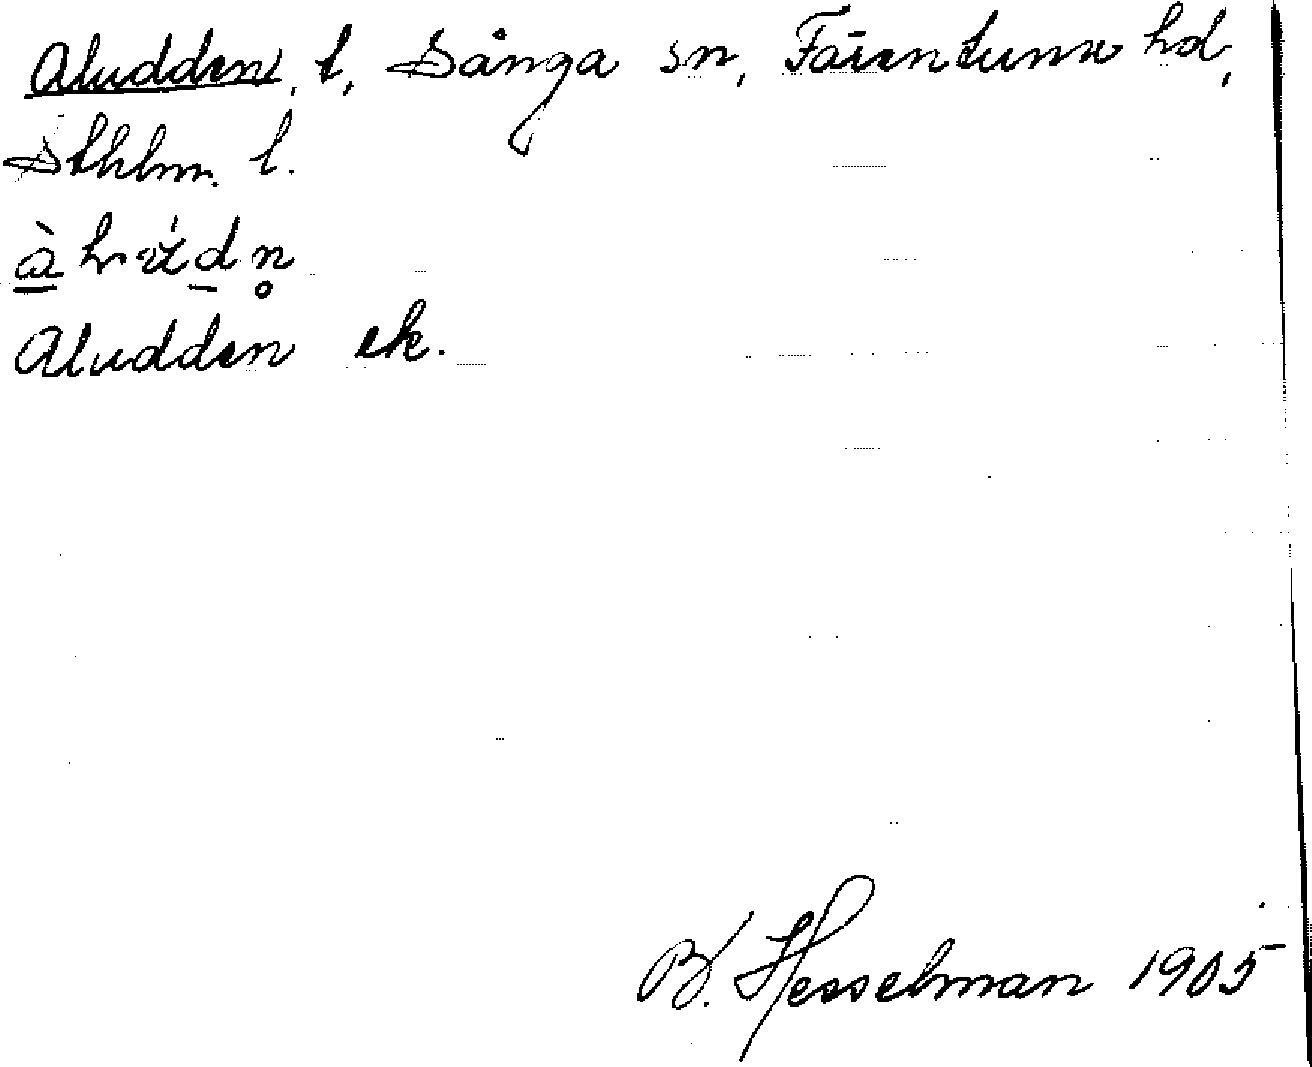 Aludden, t, Sånga sn, Färentuna hd,
Sthlm. l.
Aludden ek.
B. Hesselman 1905